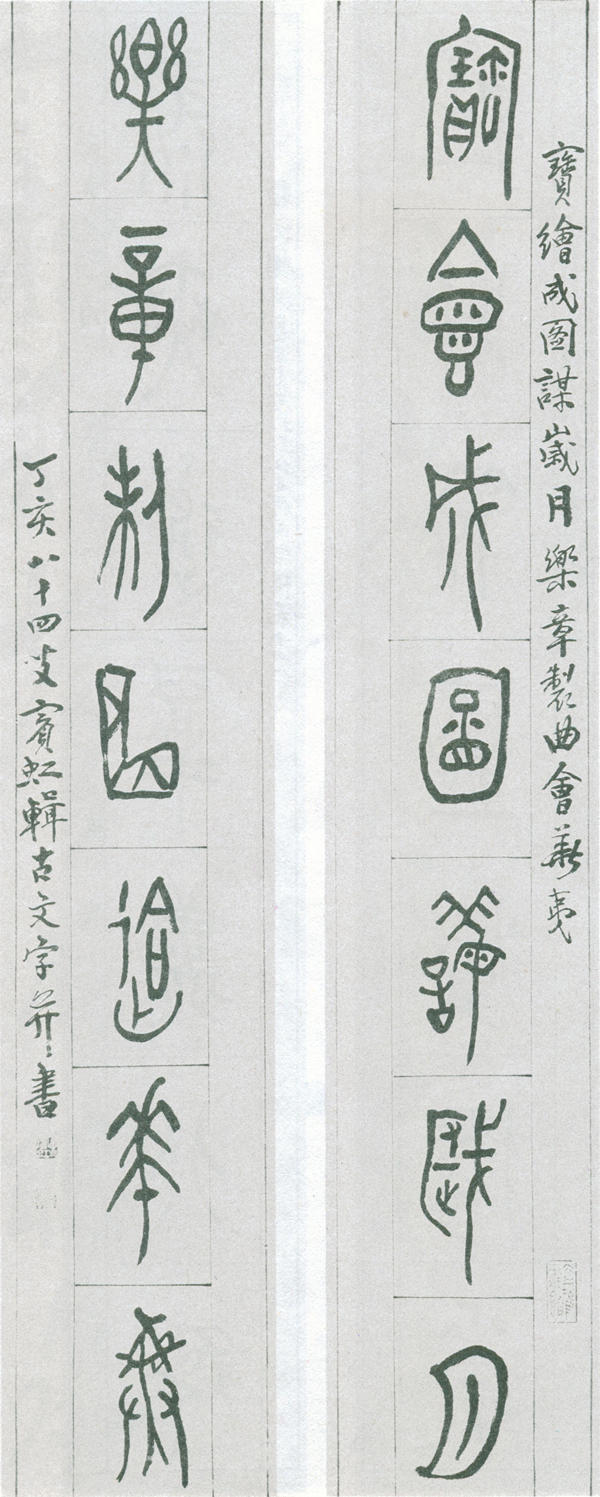 寶繪成圖謀歲月樂章製曲會華夷
寶會成圖謀歲月
樂章制曲會華夷
丁亥八十四叟賓虹輯古文字并書